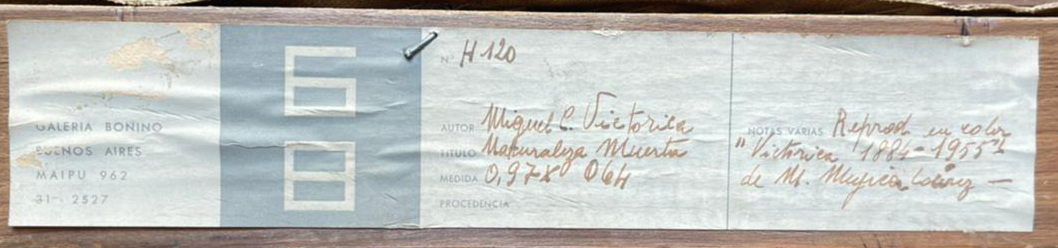 GALERIA BONINO
BUENOS AIRES
MAIPU 962
31- 2527
GB
Nº H 120
AUTOR Miguel C. Victorica
TITULO Naturaleza Muerta
MEDIDA 0,97 x 064
PROCEDENCIA
NOTAS VARIAS Reprod. en color
"Victorica 1884-1955"
de M. Mujica Láinez —